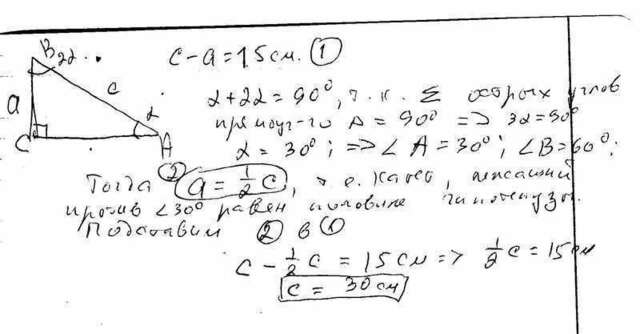 B 2α
c - a = 15 см. ①
a
c
α
C
A
α + 2α = 90°, т.к. Σ острых углов
прямоуг-го Δ = 90° => 3α = 90°
α = 30°; => ∠A = 30°; ∠B = 60°;
Тогда ② a = 1/2 c, т.е. катет, лежащий
против ∠30° равен половине гипотенузы.
Подставим ② в ①
c - 1/2 c = 15 см => 1/2 c = 15 см
c = 30 см